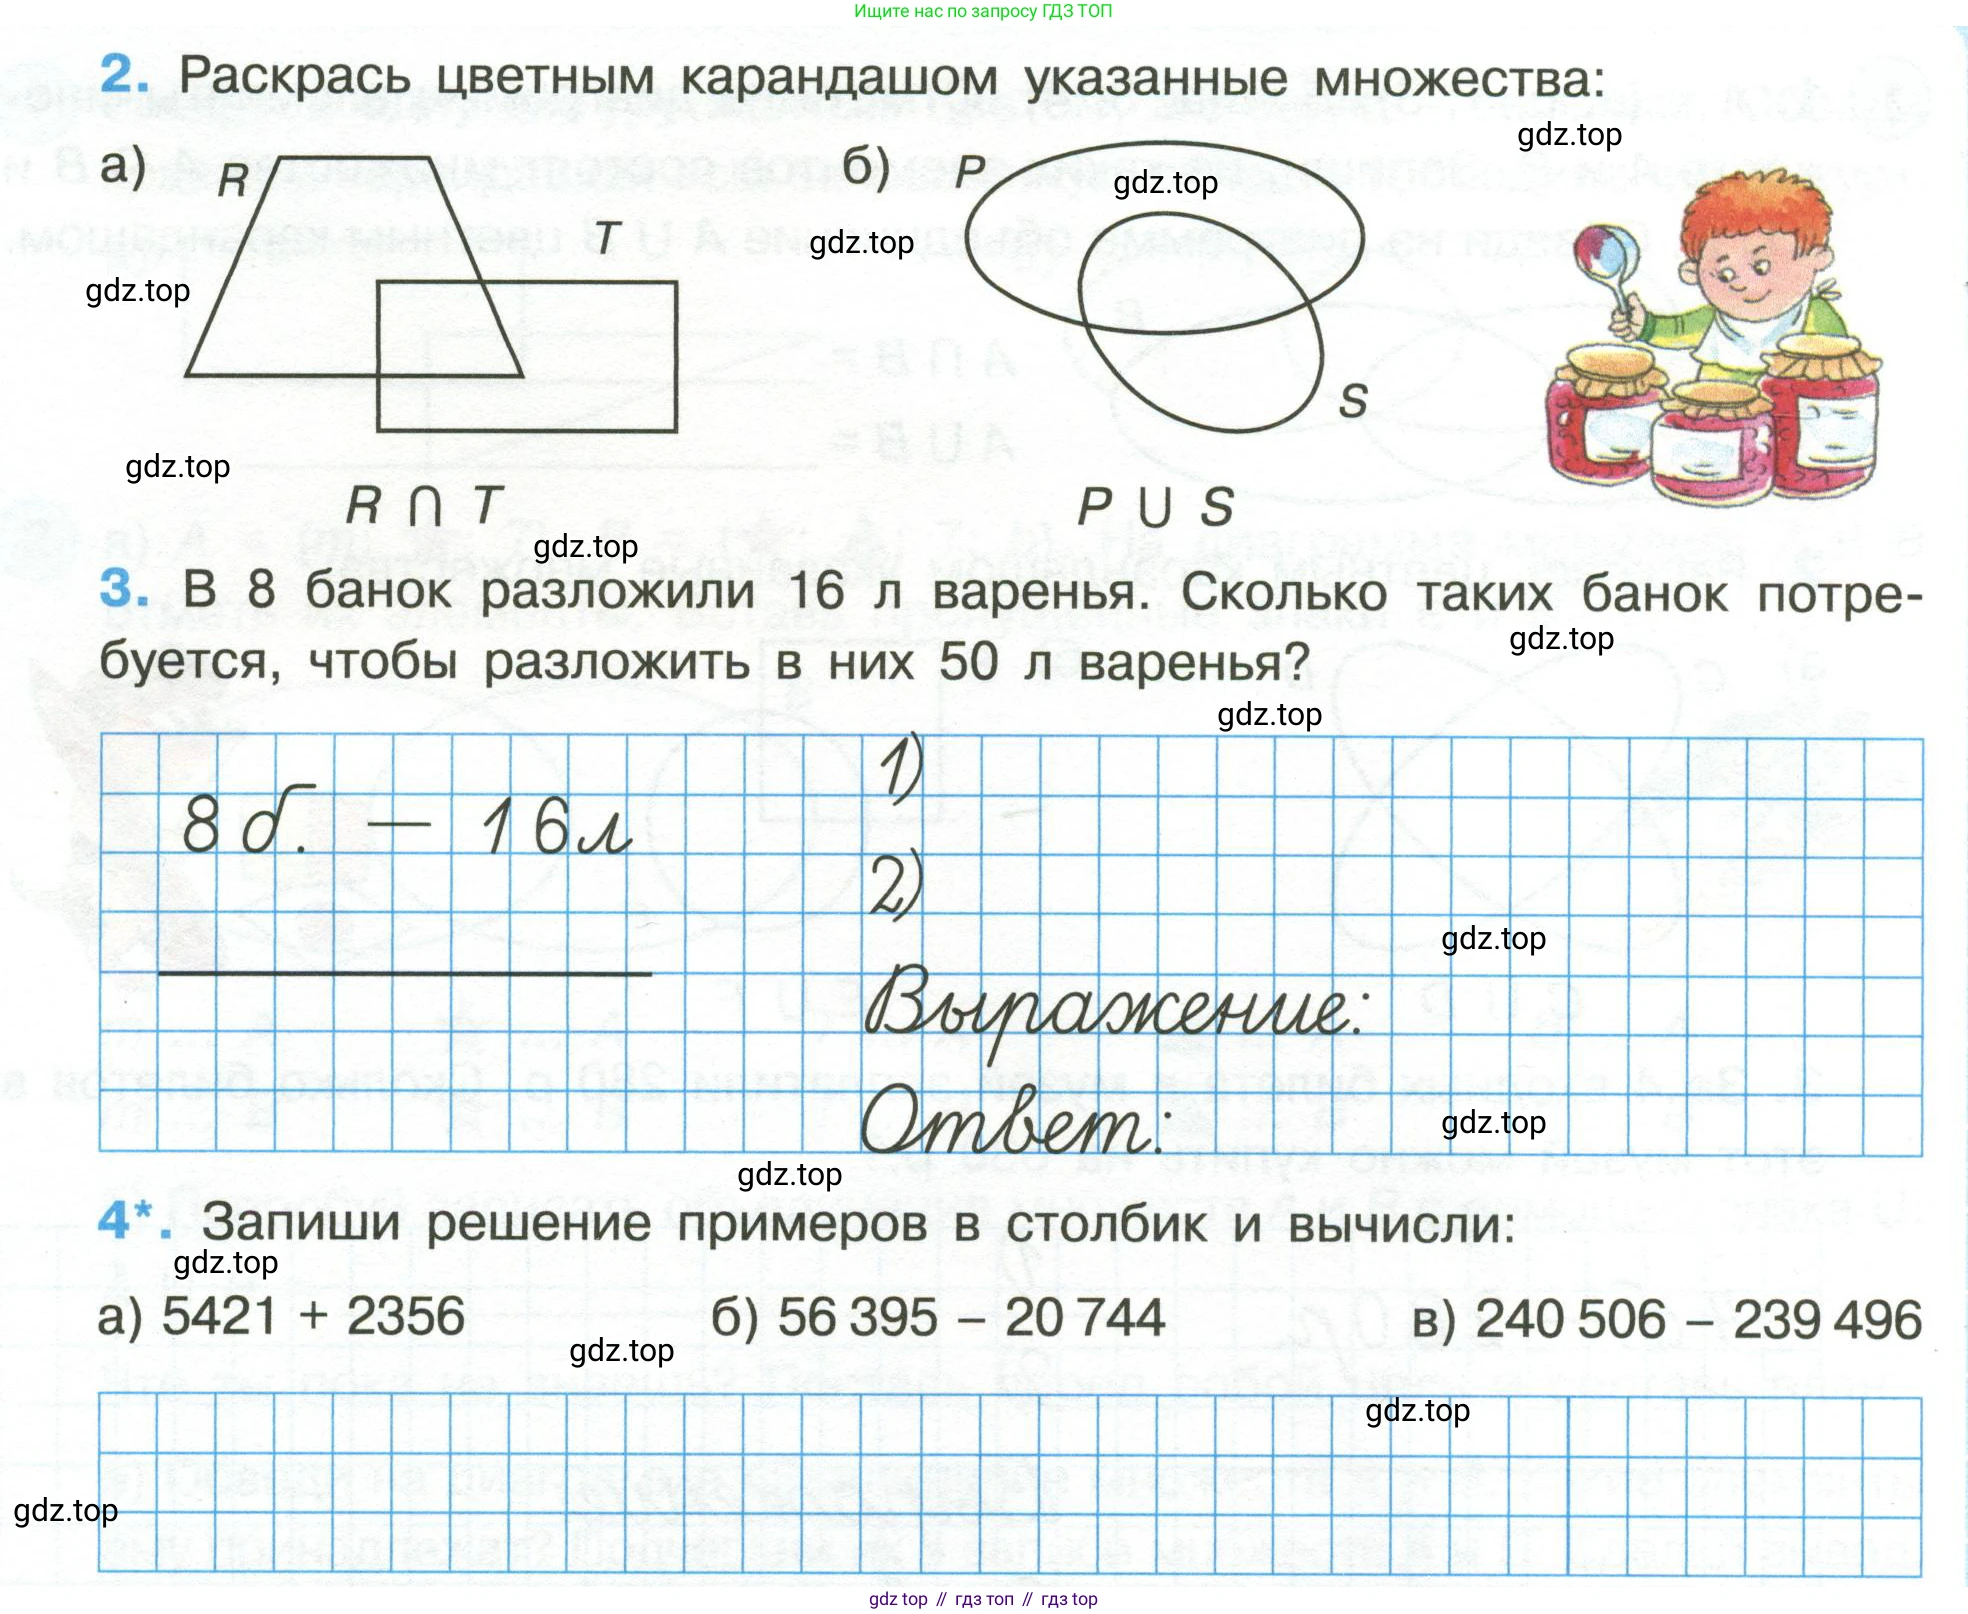 Ищите нас по запросу ГДЗ ТОП
2. Раскрась цветным карандашом указанные множества:
gdz.top
а) R б) P gdz.top
T gdz.top
gdz.top
S
gdz.top
R ∩ T P ∪ S
gdz.top
3. В 8 банок разложили 16 л варенья. Сколько таких банок потре-
gdz.top
буется, чтобы разложить в них 50 л варенья?
gdz.top
1)
8 б. — 16 л
2)
gdz.top
Выражение:
Ответ: gdz.top
gdz.top
4*. Запиши решение примеров в столбик и вычисли:
gdz.top
а) 5421 + 2356 б) 56 395 – 20 744 в) 240 506 – 239 496
gdz.top
gdz.top
gdz.top
gdz top // гдз топ // гдз top